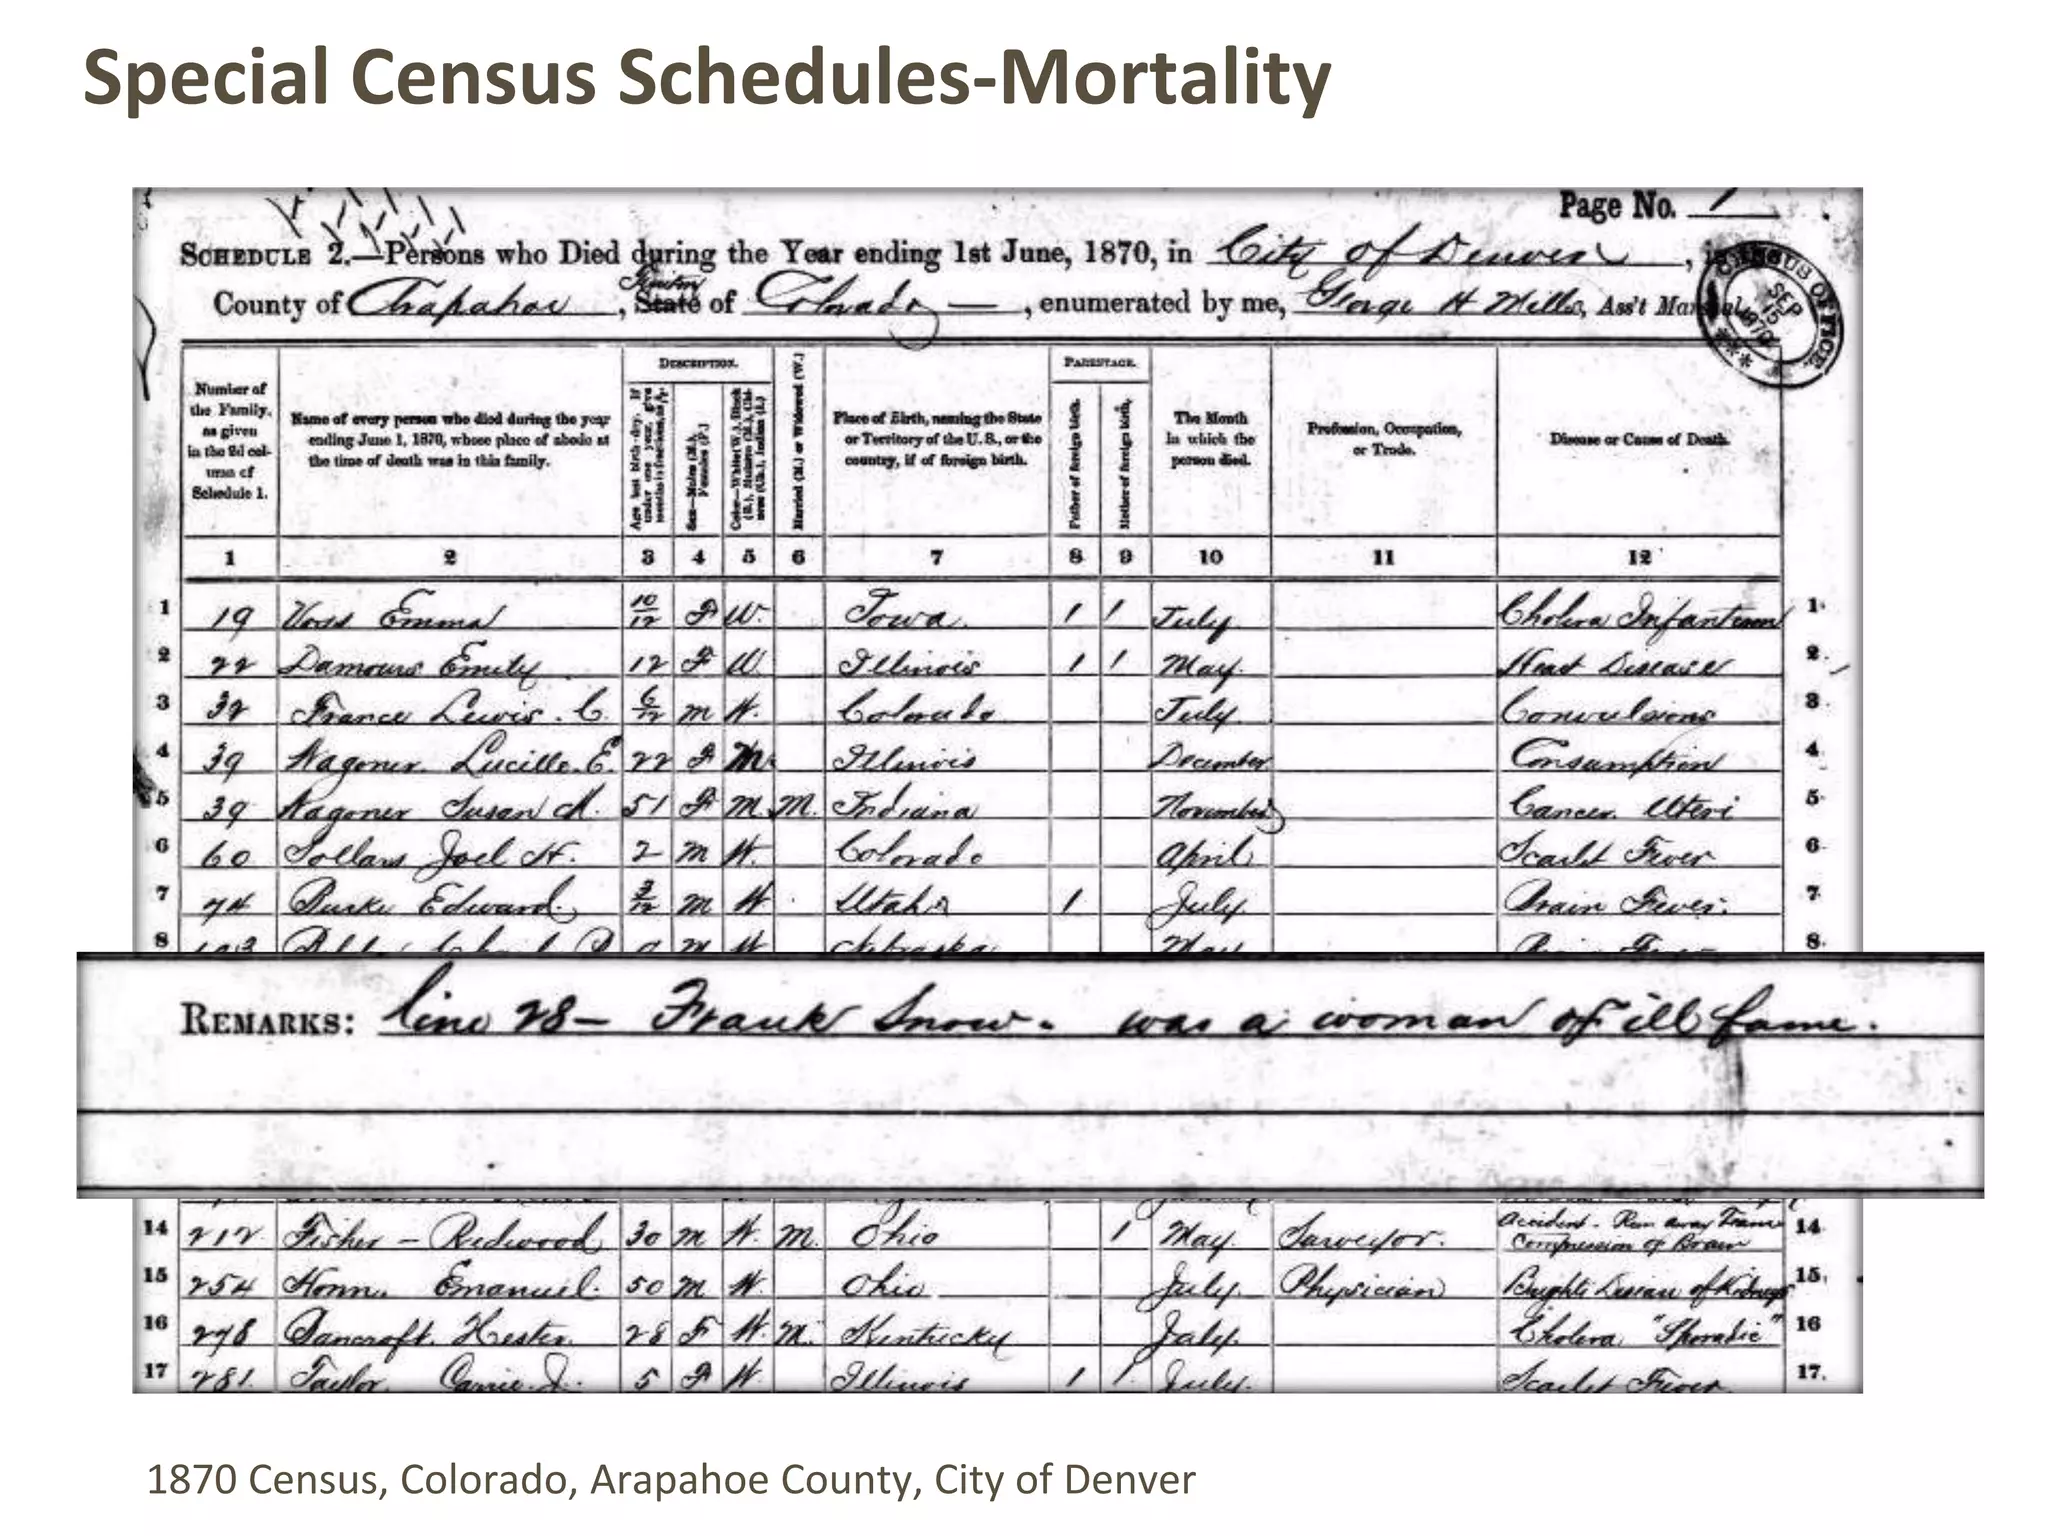 Special Census Schedules-Mortality
Page No. 1
SCHEDULE 2.—Persons who Died during the Year ending 1st June, 1870, in City of Denver, in
County of Arapahoe, State of Colorado, enumerated by me, George H Mills, Ass't Marshal.
CENSUS OFFICE. SEP 15 1870
DESCRIPTION. PARENTAGE.
Number of the Family, as given in the 2d column of Schedule 1.
Name of every person who died during the year ending June 1, 1870, whose place of abode at the time of death was in this family.
Age last birth-day. If under one year, give months in fractions, as
Sex—Males (M.), Females (F.)
Color—White (W.), Black (B.), Mulatto (M.), Chinese (Ch.), Indian (I.)
Married (M.) or Widowed (W.)
Place of Birth, naming the State or Territory of the U. S., or the country, if of foreign birth.
Father of foreign birth.
Mother of foreign birth.
The Month in which the person died.
Profession, Occupation, or Trade.
Disease or Cause of Death.
1 2 3 4 5 6 7 8 9 10 11 12
1 19 Voss Emma 10/12 F W. Iowa 1 1 July Cholera Infantum 1
2 22 Damours Emily 12 F W. Illinois 1 1 May Heart Disease 2
3 32 France Lewis. C. 6/12 M W. Colorado July Convulsions 3
4 39 Wagoner Lucille. E. 22 F M. Illinois December Consumption 4
5 39 Wagoner Susan M. 51 F M. M. Indiana November Cancer Uteri 5
6 60 Sollars Joel H. 2 M W. Colorado April Scarlet Fever 6
7 74 Burke Edward 3/12 M W Utah 1 July Brain Fever 7
8 M W. Nebraska May Fever 8
REMARKS: line 28— Frank Snow. was a woman of ill fame.
14 212 Fisher – Redwood 30 M W. M. Ohio 1 May Surveyor. Accident - Run away Team Compression of Brain 14
15 254 Horn, Emanuel. 50 M W. Ohio July. Physician Brights Disease of Kidneys 15
16 278 Bancroft. Hester. 28 F W. M. Kentucky July. Cholera "Sporadic" 16
17 281. Taylor Carrie. J. 5 F W. Illinois 1 1 July. Scarlet Fever 17
1870 Census, Colorado, Arapahoe County, City of Denver